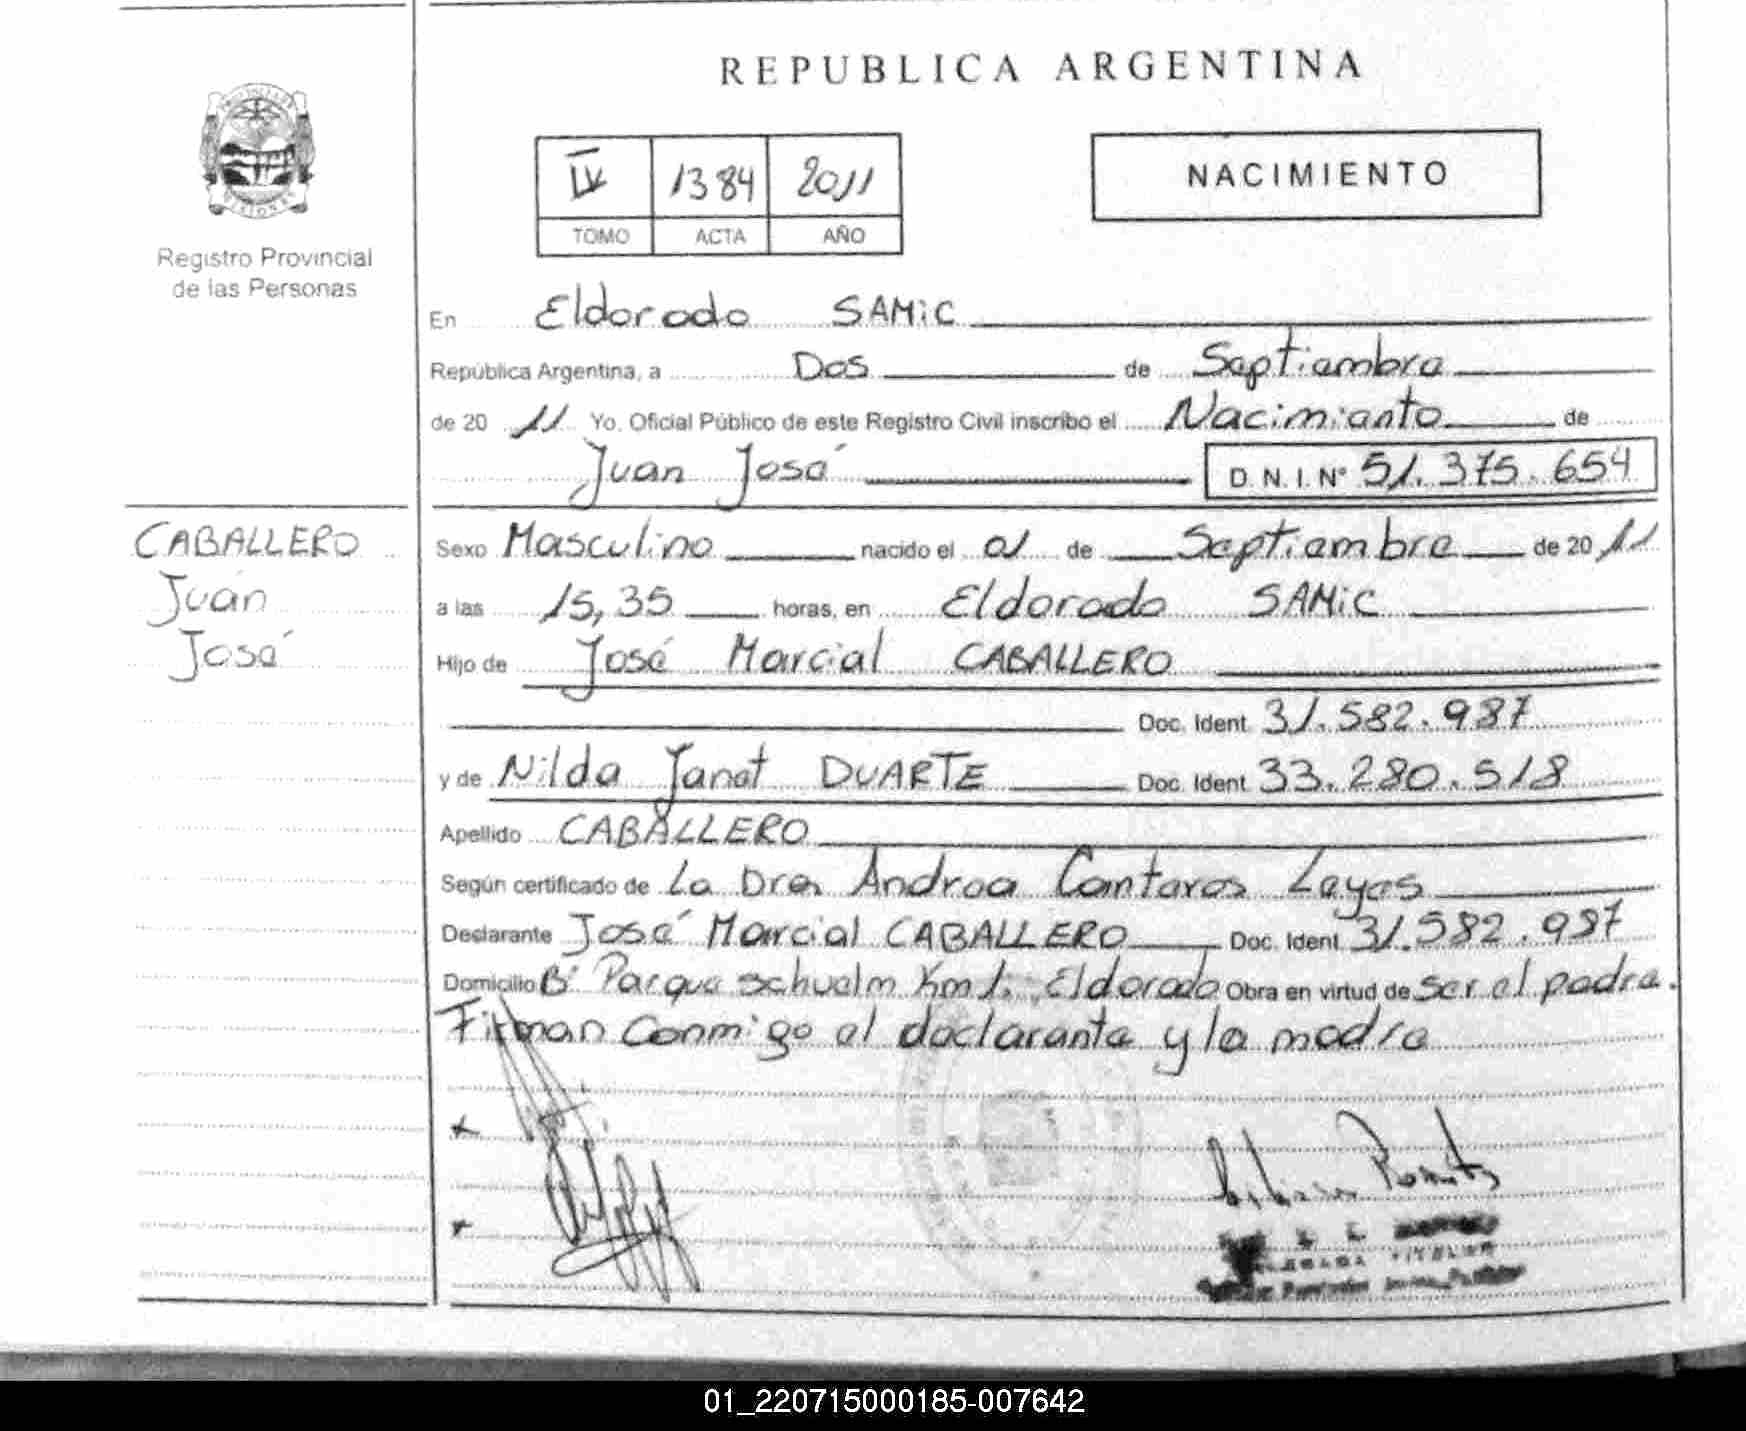 REPUBLICA ARGENTINA
IV 1384 2011
TOMO ACTA AÑO
NACIMIENTO
PROVINCIA DE
MISIONES
Registro Provincial
de las Personas
En Eldorado SAMiC
República Argentina, a Dos de Septiembre
de 20 11 Yo. Oficial Público de este Registro Civil inscribo el Nacimiento de
Juan José D.N.I. Nº 51.375.654
CABALLERO
Juan
José
Sexo Masculino nacido el 01 de Septiembre de 20 11
a las 15,35 horas, en Eldorado SAMiC
Hijo de José Marcial CABALLERO
Doc. Ident. 31.582.987
y de Nilda Janet DUARTE Doc. Ident. 33.280.518
Apellido CABALLERO
Según certificado de La Dra. Andrea Cantaros Leyes
Declarante José Marcial CABALLERO Doc. Ident. 31.582.987
Domicilio Bº Parque Schuelm Km 1. Eldorado Obra en virtud de ser el padre.
Firman Conmigo el declarante y la madre
TITULAR
01_220715000185-007642